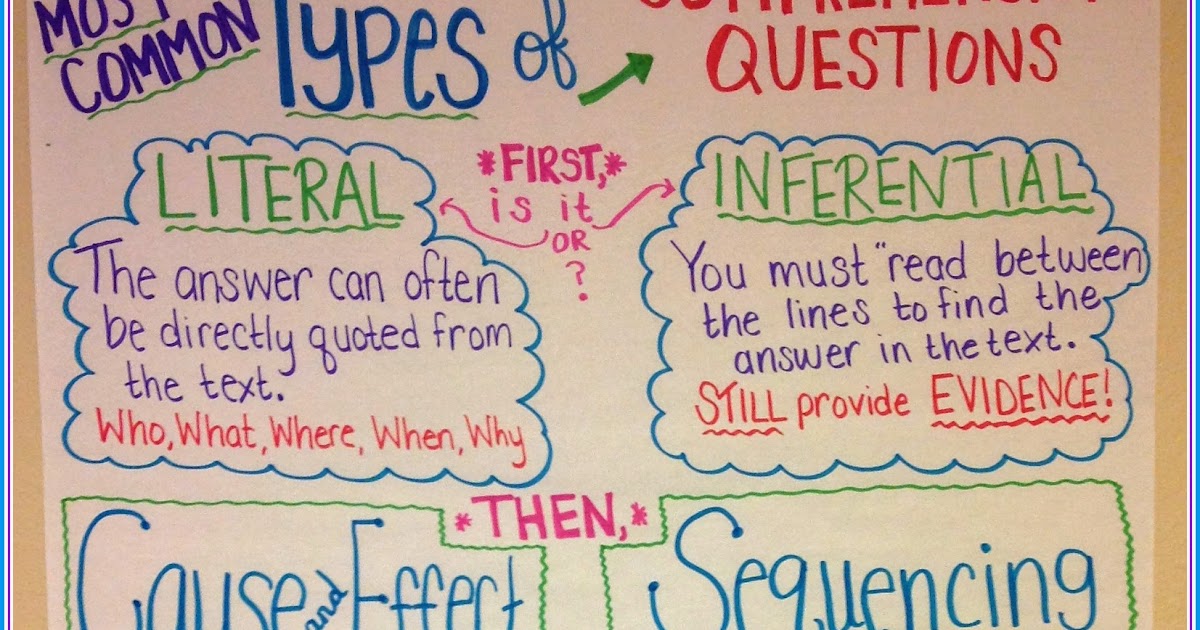 MOST
COMMON
Types of
COMPREHENSION
QUESTIONS
LITERAL
The answer can often
be directly quoted from
the text.
Who, What, Where, When, Why
*FIRST,*
is it
OR
?
INFERENTIAL
You must "read between
the lines to find the
answer in the text.
STILL provide EVIDENCE!
*THEN,*
Cause and Effect
Sequencing